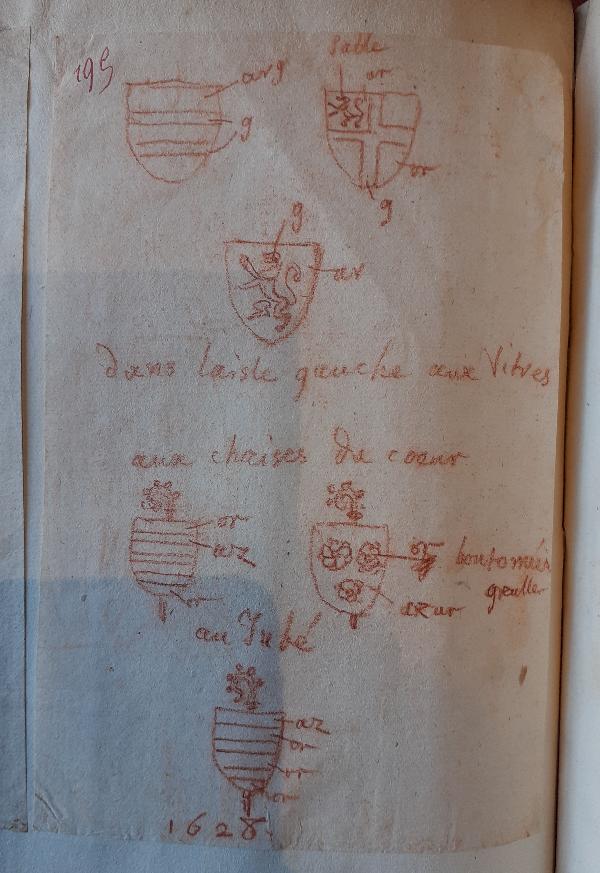 195
Sable
arg
or
g
or
g
g
ar
dans laisle gauche aux Vitres
aux chaises du coeur
or
az
or
boutonnés
gueulles
azur
au Jubé
az
1628